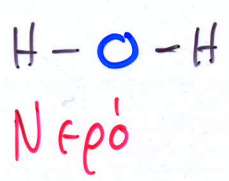 H - O - H
Νερό